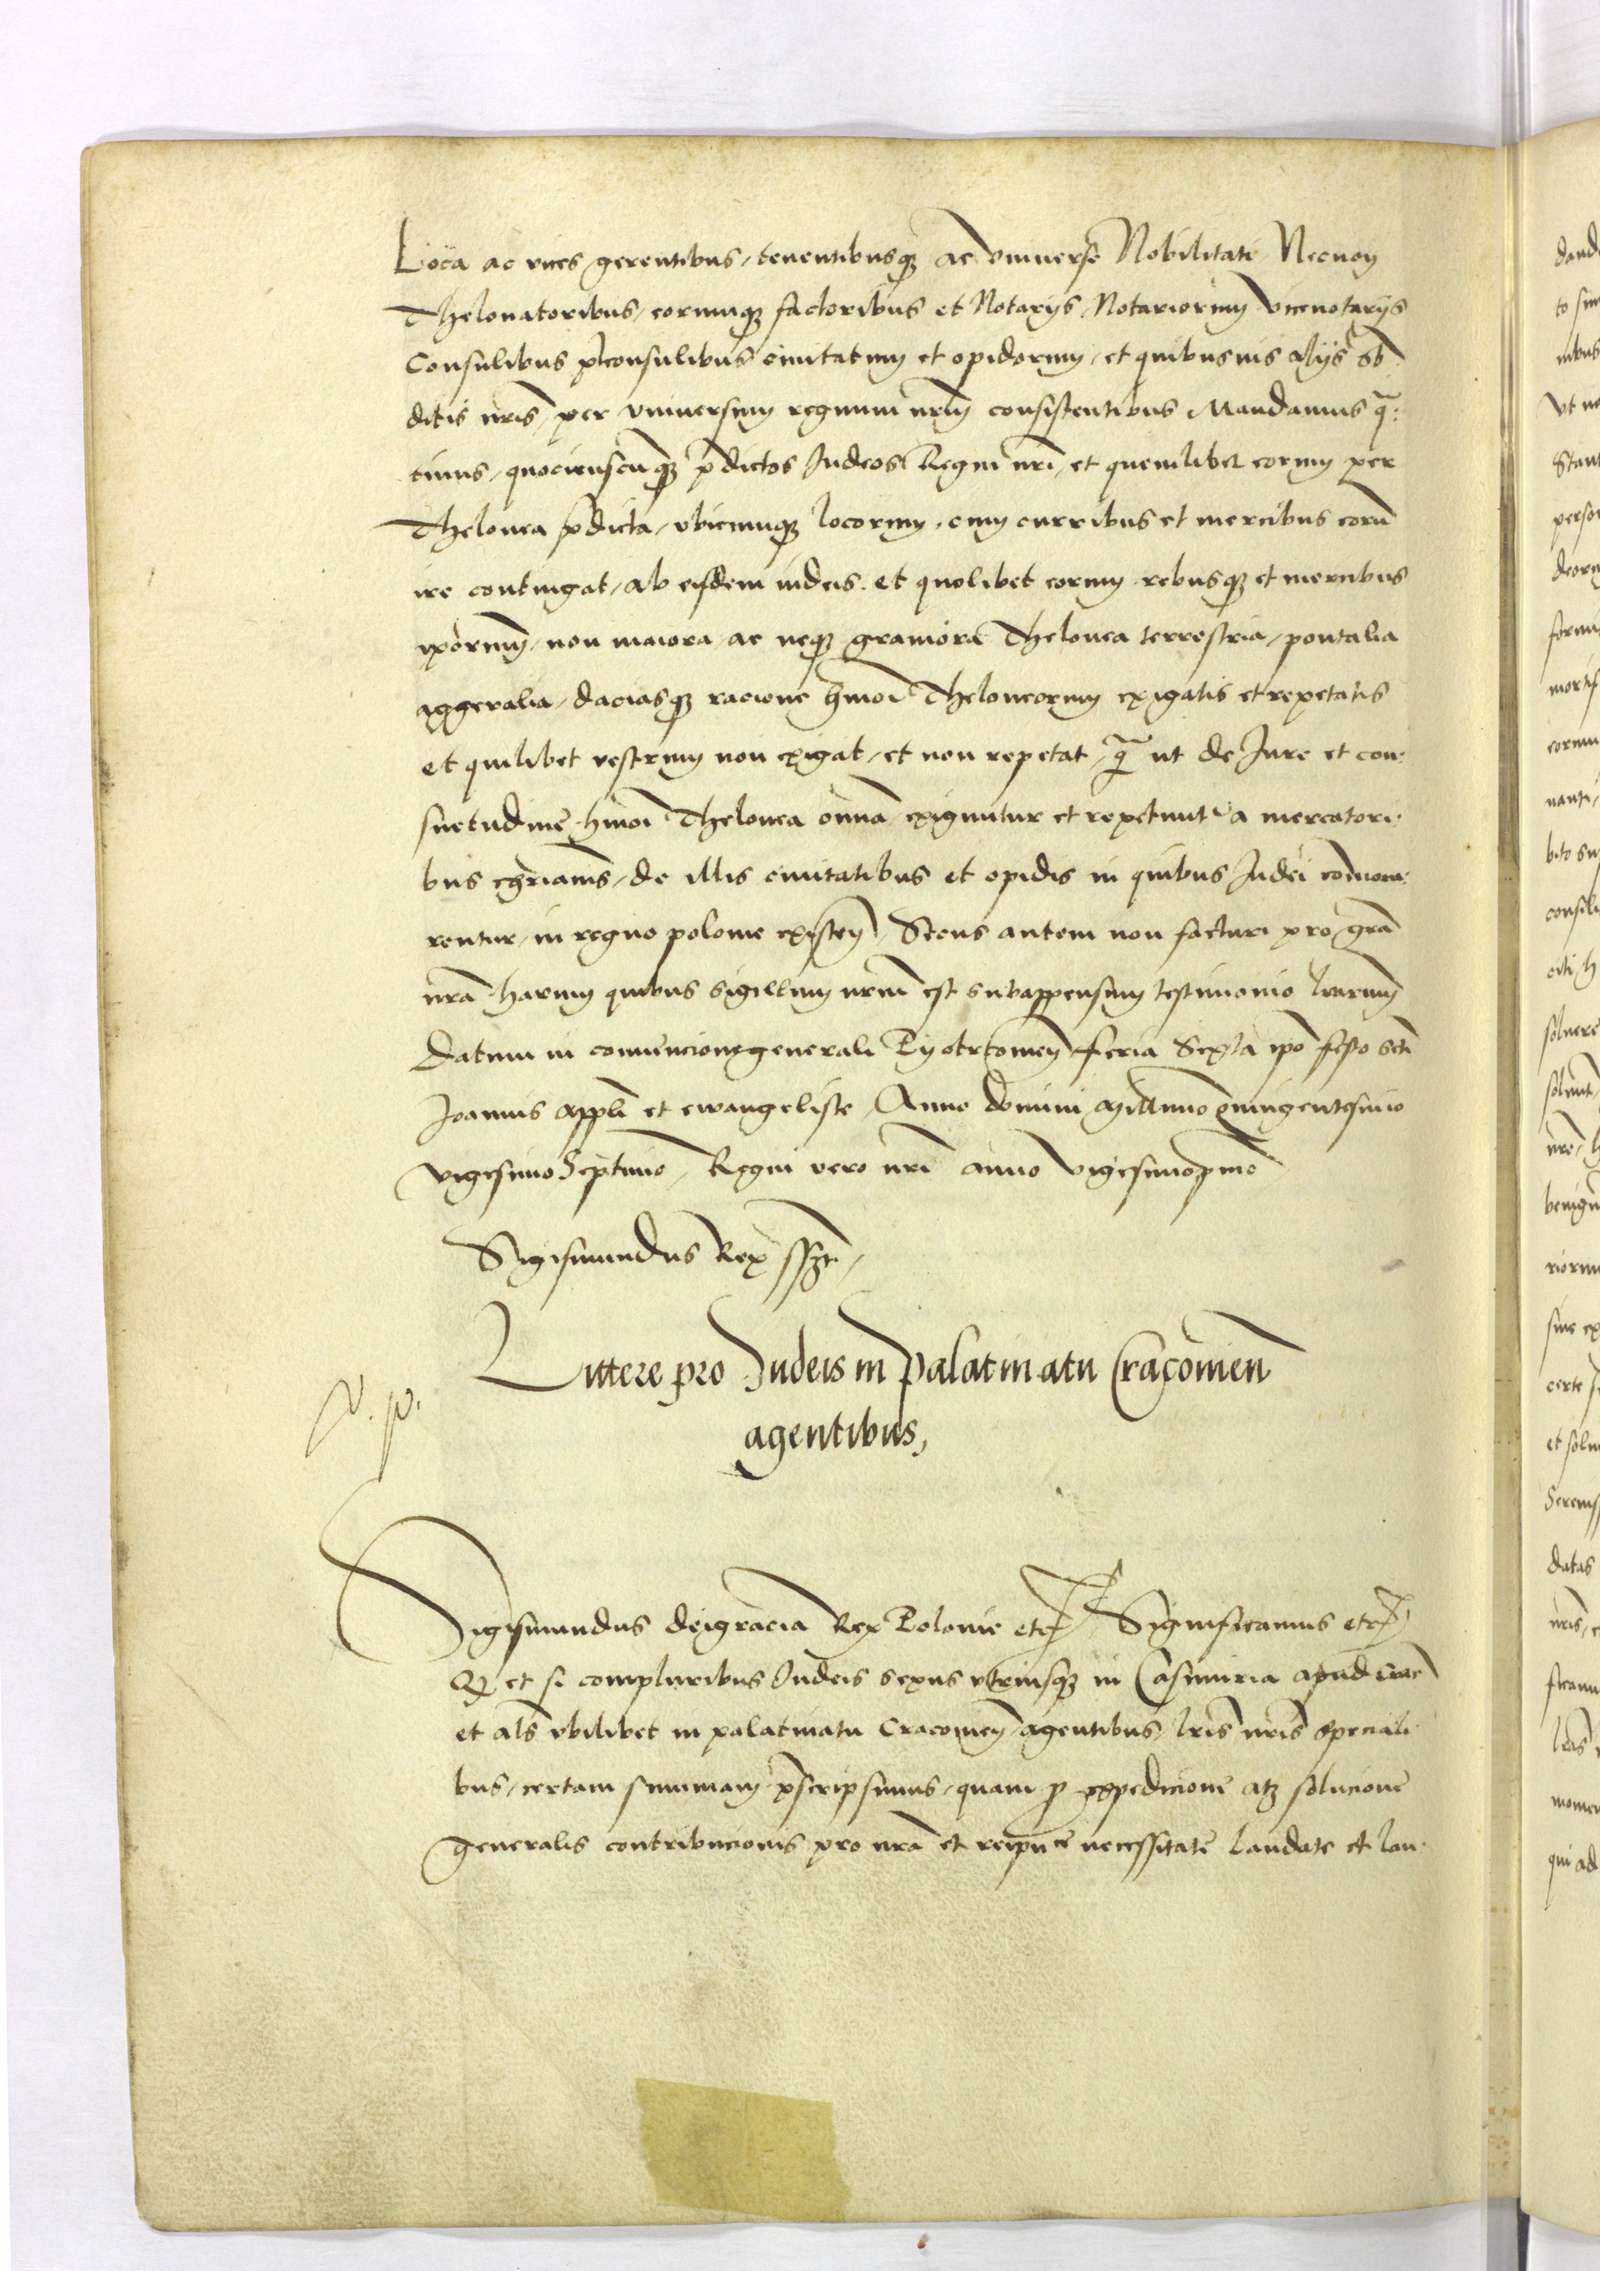 Loca ac vices gerentibus, tenentibusq₃ ac vniuerse Nobilitati Necnon
Thelonatoribus, eorumq₃ factoribus et Notarijs, Notariorum vicenotarijs
Consulibus p̃consulibus ciuitatum et opidorum, et quibusuis alijs sb̃
ditis nr̃is, per vniuersum regnum nr̃m consistentibus Mandamus q̃
tinus, quocienscunq₃ p̃dictos Iudeos Regni nr̃i, et quemlibet eorum per
Thelonea p̃dicta, vbicunq₃ locorum, cum curribus et mercibus eorũ
ire contingat, ab eisdem iudeis. et quolibet eorum rebusq₃ et mercibus
ip̃orum, non maiora, ac neq₃ grauiora Thelonea terrestria, pontalia
aggeralia, daciasq₃ racione hm̃oi Theloneorum exigatis et repetatis
et quilibet vestrum non exigat, et non repetat, q̃ ut de Iure et con
suetudine hm̃oi Thelonea om̃ia exiguntur et repetunt̃ a mercatori
bus chr̃ianis, de illis ciuitatibus et opidis in quibus Iudei com̃ora
rentur, in regno polonie existeñ, Secus autem non facturi pro gr̃a
nr̃a harum quibus sigillum nr̃m est subappensum testimonio lr̃arum
Datum in conuencione generali Pyotrcouieñ feria Sexta ip̃o festo sc̃ti
Ioannis app̃li et ewangeliste, Anno domini Millimo Quingentesimo
vigesimo Septimo, Regni vero nr̃i anno vigesimop̃mo
Sigismundus Rex sst,
Littere pro Iudeis in Palatinatu Cracouieñ
agentibus,
Sigismundus dei gracia Rex Polonie etc Significamus etc
Q et si compluribus Iudeis sexus vtriusq₃ in Casimiria apud Crac̃
et al̃s vbilibet in palatinatu Cracouieñ agentibus, lr̃is nr̃is speciali
bus, certam summam p̃scripsimus, quam p expedicione atq₃ solucione
generalis contribucionis pro nr̃a et reipu͠e necessitate laudate et lau